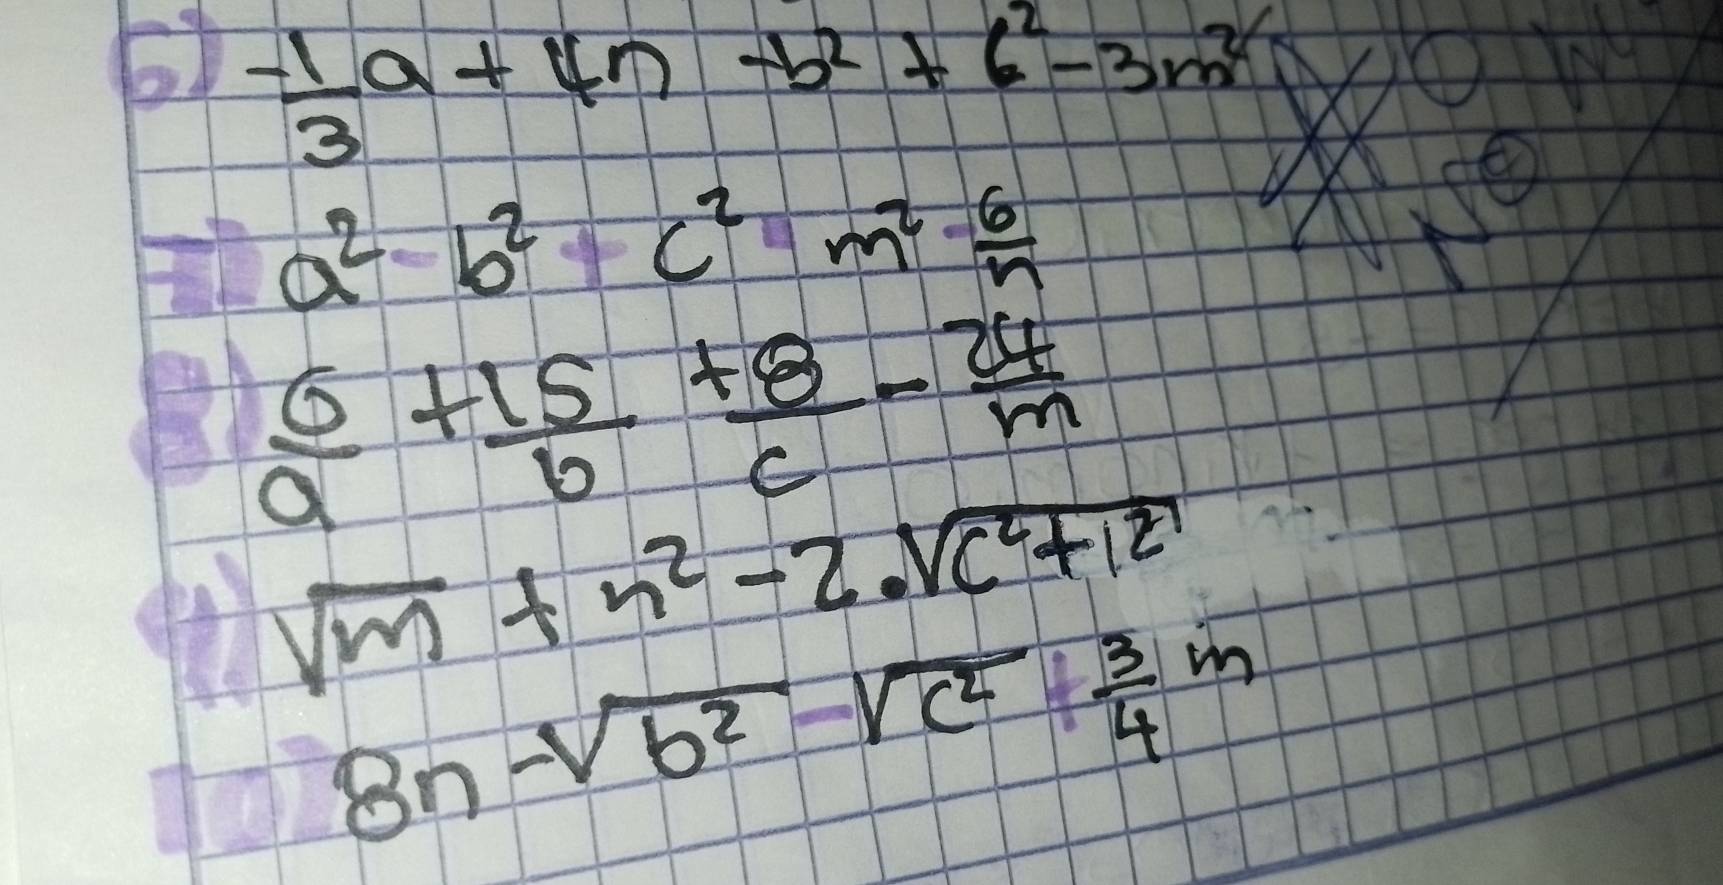 6) -1/3 a + 4n - b² + 6² - 3m²
7) a² - b² + c² - m² - 6/n
8) 6/a + 15/b + 8/c - 24/m
9) √m + n² - 2·√(c²+12)
10) 8n - √b² - √c² + 3/4 m